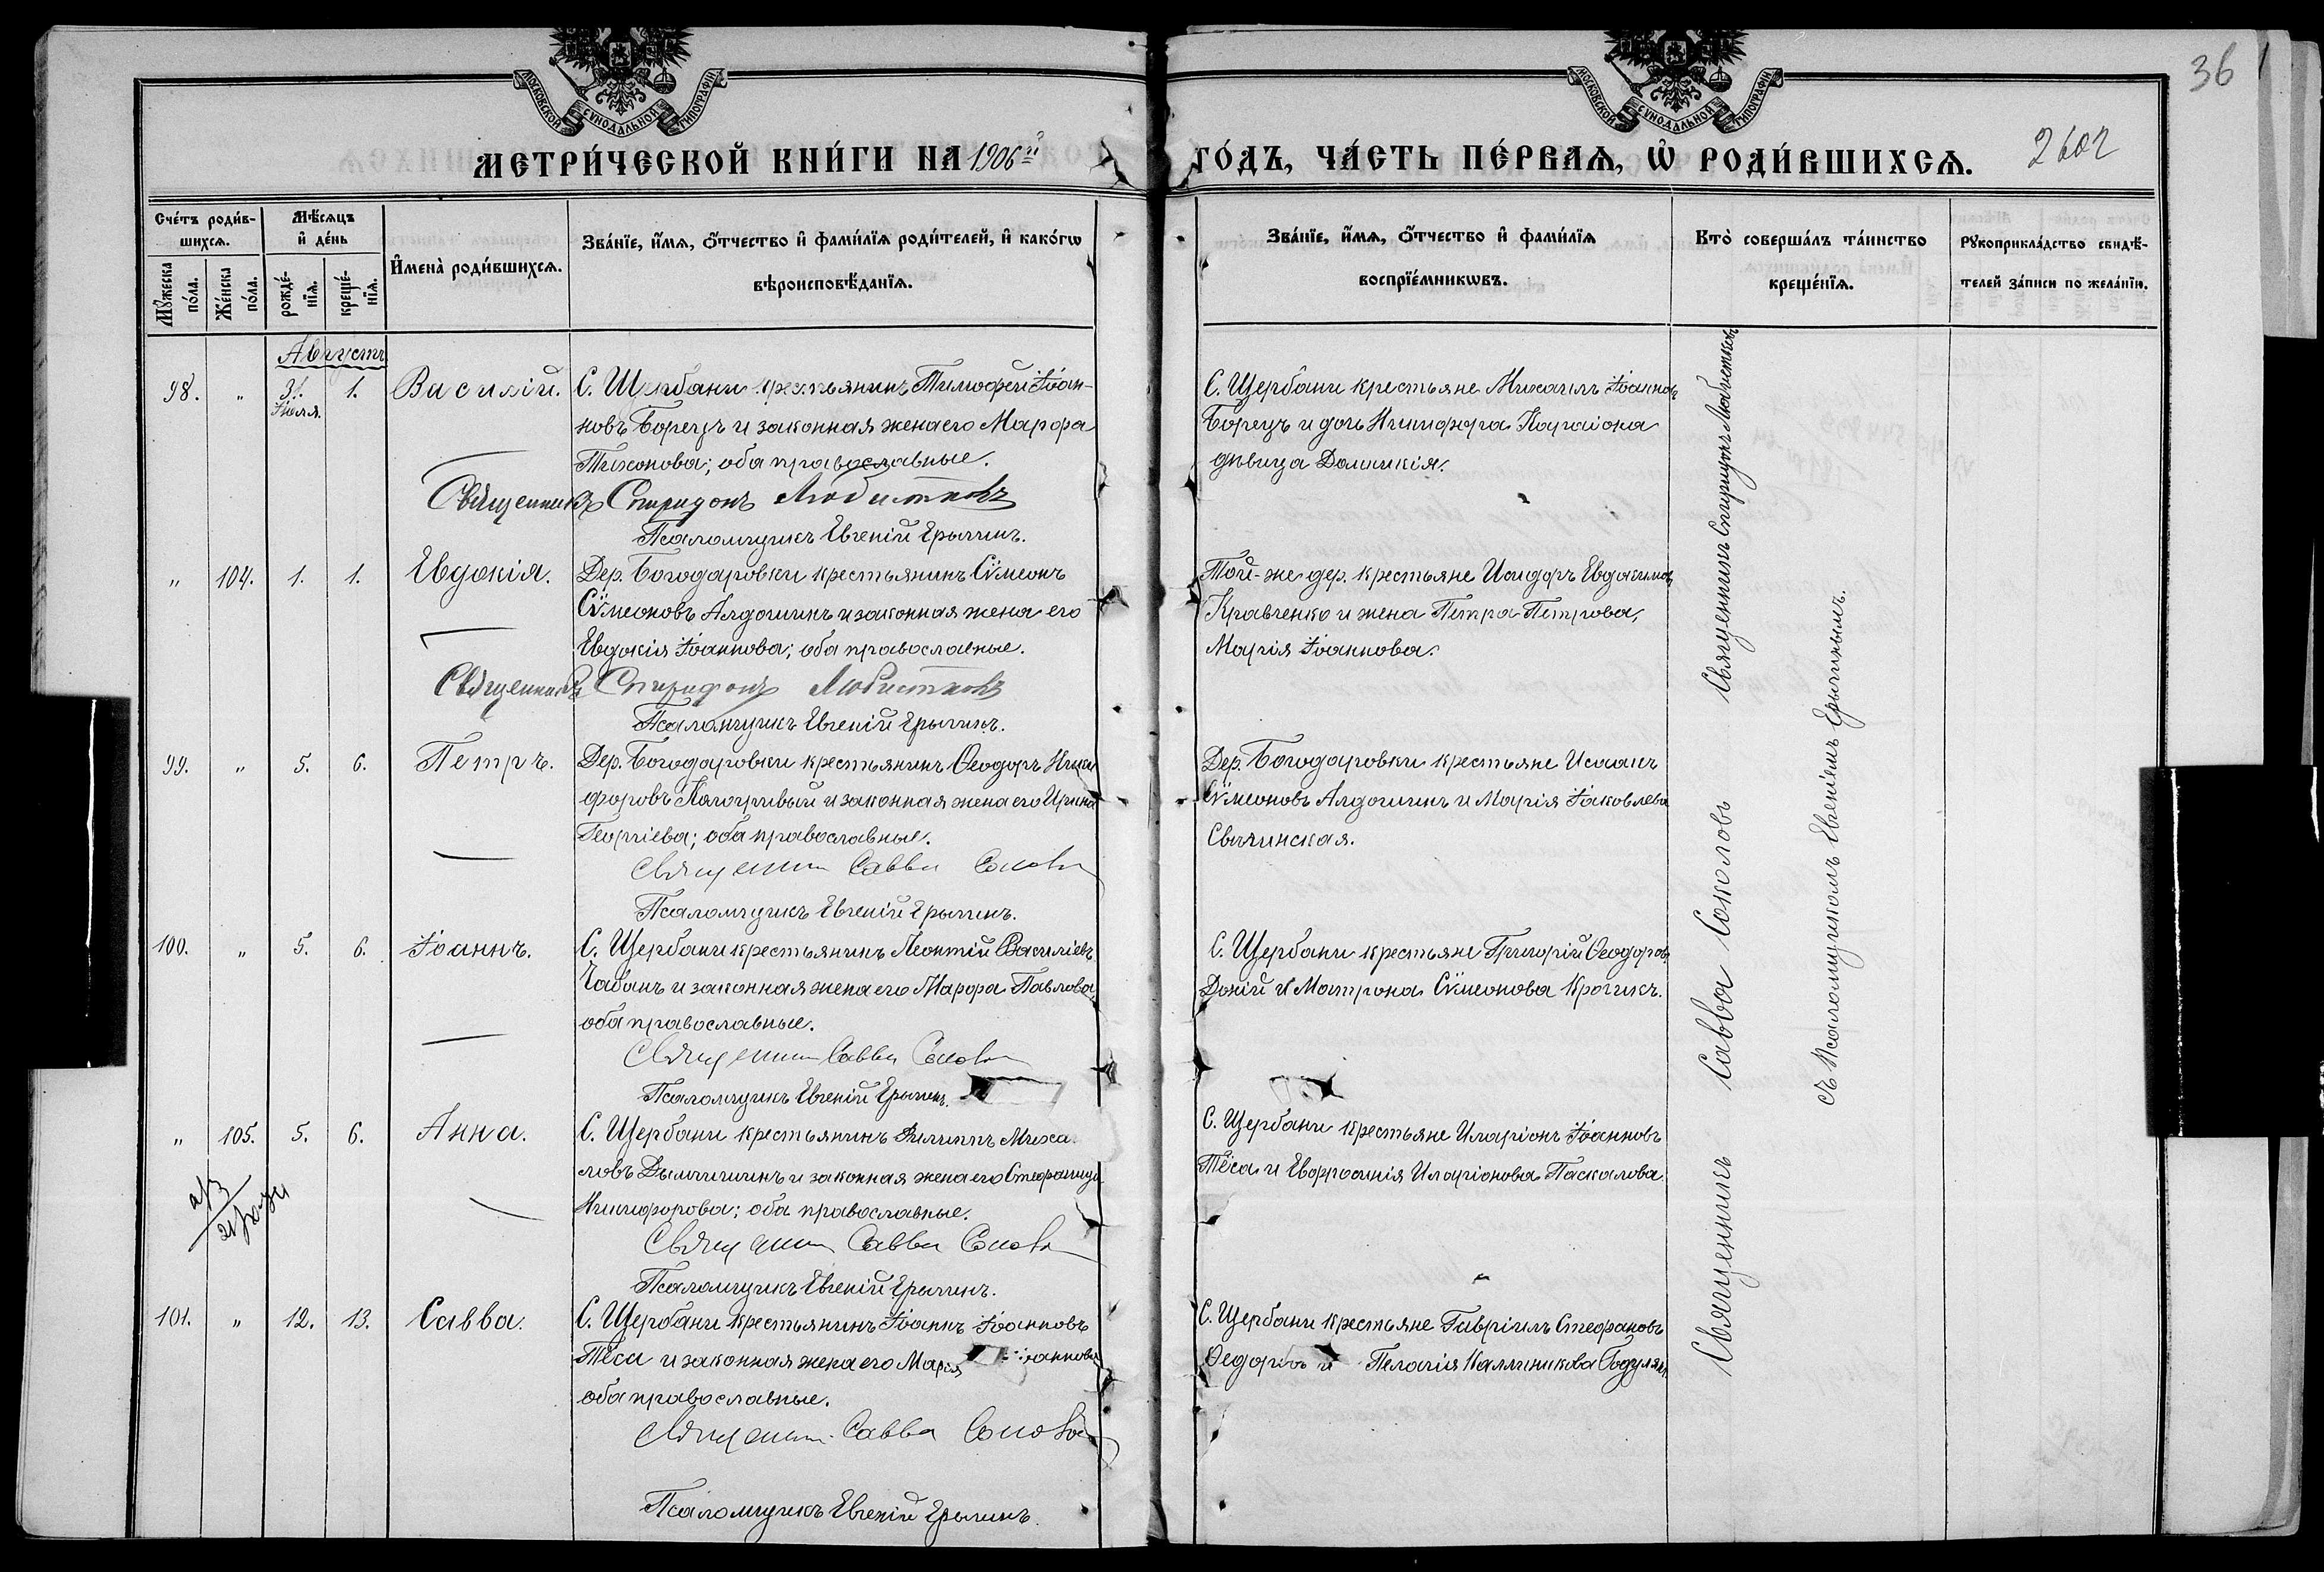 МОСКОВСКОЙ СѴНОДАЛЬНОЙ ТИПОГРАФІИ
МОСКОВСКОЙ СѴНОДАЛЬНОЙ ТИПОГРАФІИ
36
МЕТРИ́ЧЕСКОЙ КНИ́ГИ НА 1906й
ГО́ДЪ, ЧА́СТЬ ПЕ́РВАѦ, Ѡ҆ РОДИ́ВШИХСѦ.
2602
Сче́тъ роди́в-
шихсѧ.
Мѣ́сѧцъ
и҆ де́нь
Мꙋ́жеска по́ла.
Же́нска по́ла.
рожде́-нїѧ.
креще́-нїѧ.
И҆мена̀ роди́вшихсѧ.
Зва́нїе, и҆́мѧ, ѻ҆́тчество и҆ фами́лїѧ роди́телей, и҆ како́гѡ
вѣроисповѣ́данїѧ.
Зва́нїе, и҆́мѧ, ѻ҆́тчество и҆ фами́лїѧ
воспрїе́мникѡвъ.
Кто̀ соверша́лъ та́инство
креще́нїѧ.
Рꙋкоприкла́дство свидѣ́-
телей за́писи по жела́нїю.
Августъ
98. " 31. Іюля. 1. Василій.
С. Щербани крестьянинъ Тимофей Іоан-
новъ Борецъ и законная жена его Марфа
Тихонова; оба православные.
Священникъ Спиридонъ Любистковъ
Псаломщикъ Евгеній Ерыгинъ.
С. Щербани крестьяне Михаилъ Іоанновъ
Борецъ и дочь Никифора
дѣвица Домникія.
" 104. 1. 1. Евдокія.
Дер. Богодаровки крестьянинъ Сѵмеонъ
Сѵмеоновъ Алдошинъ и законная жена его
Евдокія Іоаннова; оба православные.
Священникъ Спиридонъ Любистковъ
Псаломщикъ Евгеній Ерыгинъ.
Той-же дер. крестьяне Исидоръ Евдокимовъ
Кравченко и жена Петра Петрова,
Марія Іоаннова.
99. " 5. 6. Петръ.
Дер. Богодаровки крестьянинъ Ѳеодоръ Ники
форовъ и законная жена его Ирина
Георгіева; оба православные.
Священникъ Савва Соколовъ
Псаломщикъ Евгеній Ерыгинъ.
Дер. Богодаровки крестьяне Исаакъ
Сѵмеоновъ Алдошинъ и Марія Іаковлева
100. " 5. 6. Іоаннъ.
С. Щербани крестьянинъ Леонтій Василіевъ
Чабанъ и законная жена его Марфа Павлова
оба православные.
Священникъ Савва Соколовъ
Псаломщикъ Евгеній Ерыгинъ.
С. Щербани крестьяне Григорій Ѳеодоровъ
Доній и Матрона Сѵмеонова
" 105. 5. 6. Анна.
С. Щербани крестьянинъ Филиппъ Миха
ловъ и законная жена его Стефанида
Никифорова; оба православные.
Священникъ Савва Соколовъ
Псаломщикъ Евгеній Ерыгинъ.
С. Щербани крестьяне Иларіонъ Іоанновъ
Тёса и Евфросинія Иларіонова Паскалова
101. " 12. 13. Савва.
С. Щербани крестьянинъ Іоаннъ Іоанновъ
Тёса и законная жена его Марія Іоаннова
оба православные.
Священникъ Савва Соколовъ
Псаломщикъ Евгеній Ерыгинъ.
С. Щербани крестьяне Гавріилъ Стефановъ
Ѳедоровъ и Пелагія Каллиникова
Священникъ Спиридонъ Любистковъ
Священникъ Савва Соколовъ
съ Псаломщикомъ Евгеніемъ Ерыгинымъ.